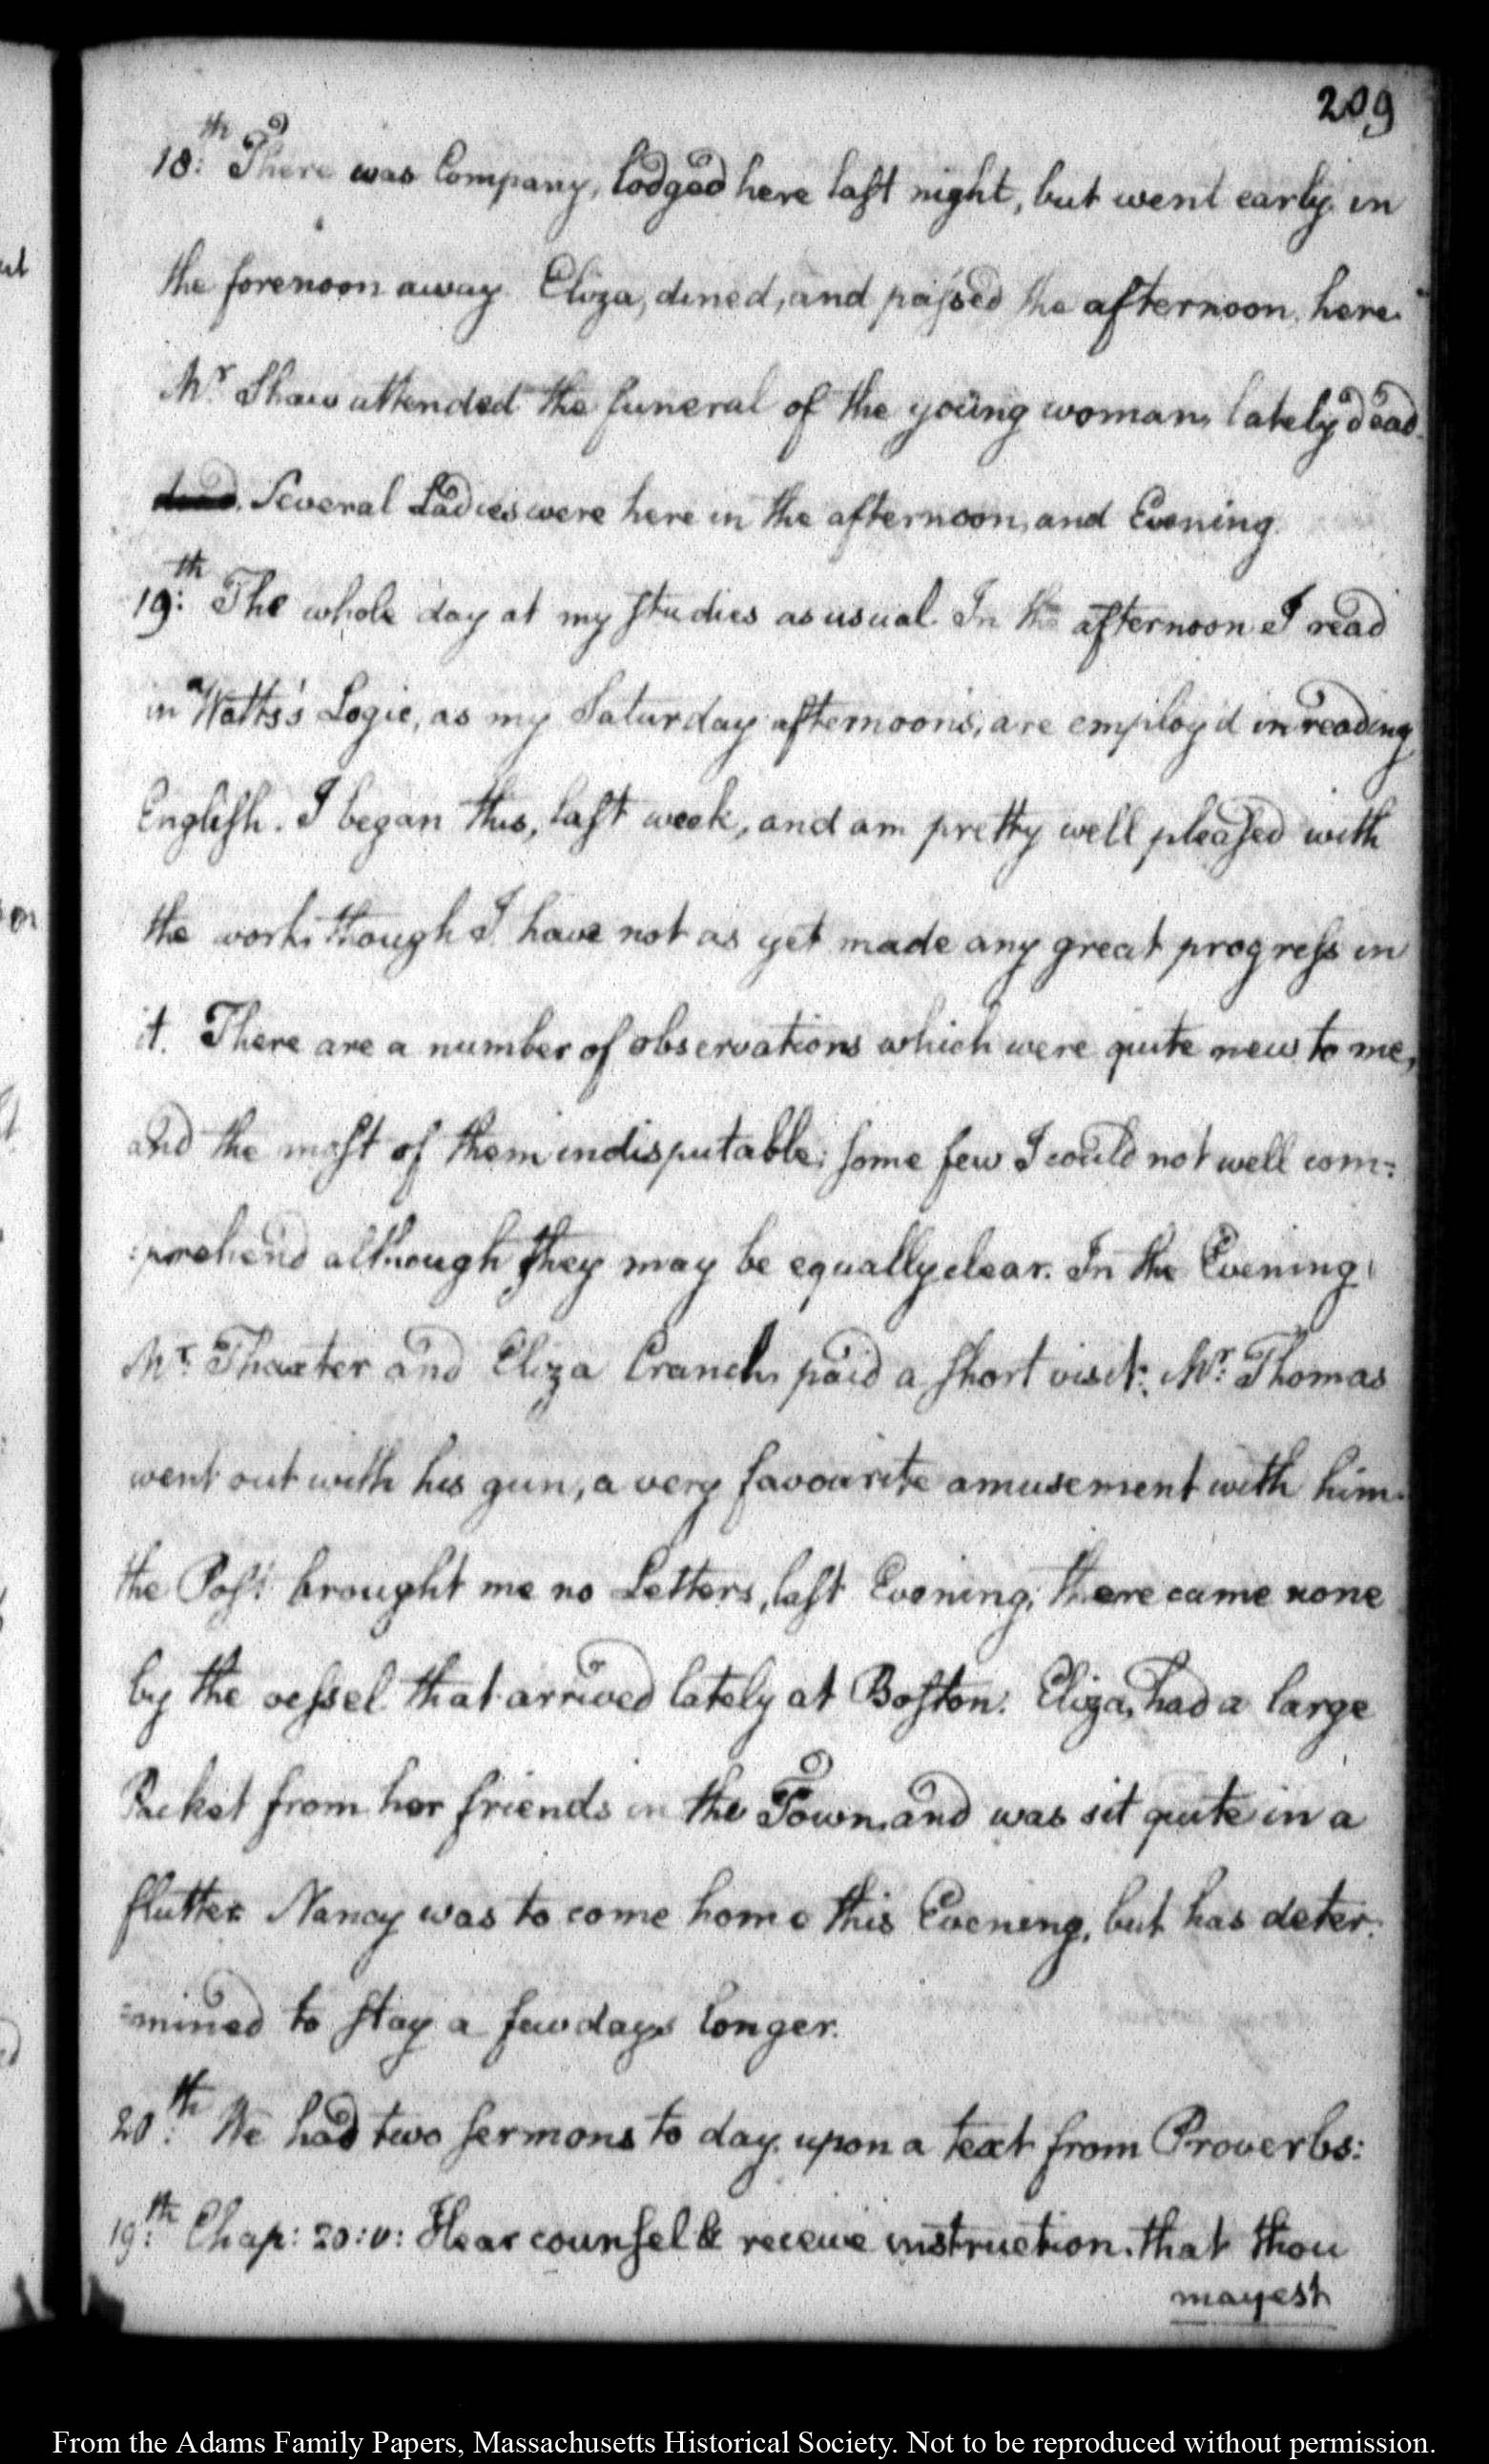 209
18:th There was Company, lodged here last night, but went early in
the forenoon away. Eliza, dined, and passed the afternoon here.
Mr. Shaw attended the funeral of the young woman, lately dead
dead. Several Ladies were here in the afternoon, and Evening.
19:th The whole day at my studies as usual. In the afternoon I read
in Watts's Logic, as my Saturday afternoons, are employ'd in reading
English. I began this, last week, and am pretty well pleased with
the work, though I have not as yet made any great progress in
it. There are a number of observations which were quite new to me,
and the most of them indisputable; some few I could not well com=
=prehend although they may be equally clear. In the Evening,
Mr. Thaxter and Eliza Cranch, paid a short visit: Mr. Thomas
went out with his gun, a very favourite amusement with him.
the Post brought me no Letters, last Evening; there came none
by the vessel that arrived lately at Boston. Eliza, had a large
Packet from her friends in the Town, and was sit quite in a
flutter. Nancy was to come home this Evening, but has deter=
=mined to stay a few days longer.
20:th We had two sermons to day, upon a text from Proverbs:
19:th Chap: 20:v: Hear counsel & receive instruction, that thou
mayest
From the Adams Family Papers, Massachusetts Historical Society. Not to be reproduced without permission.